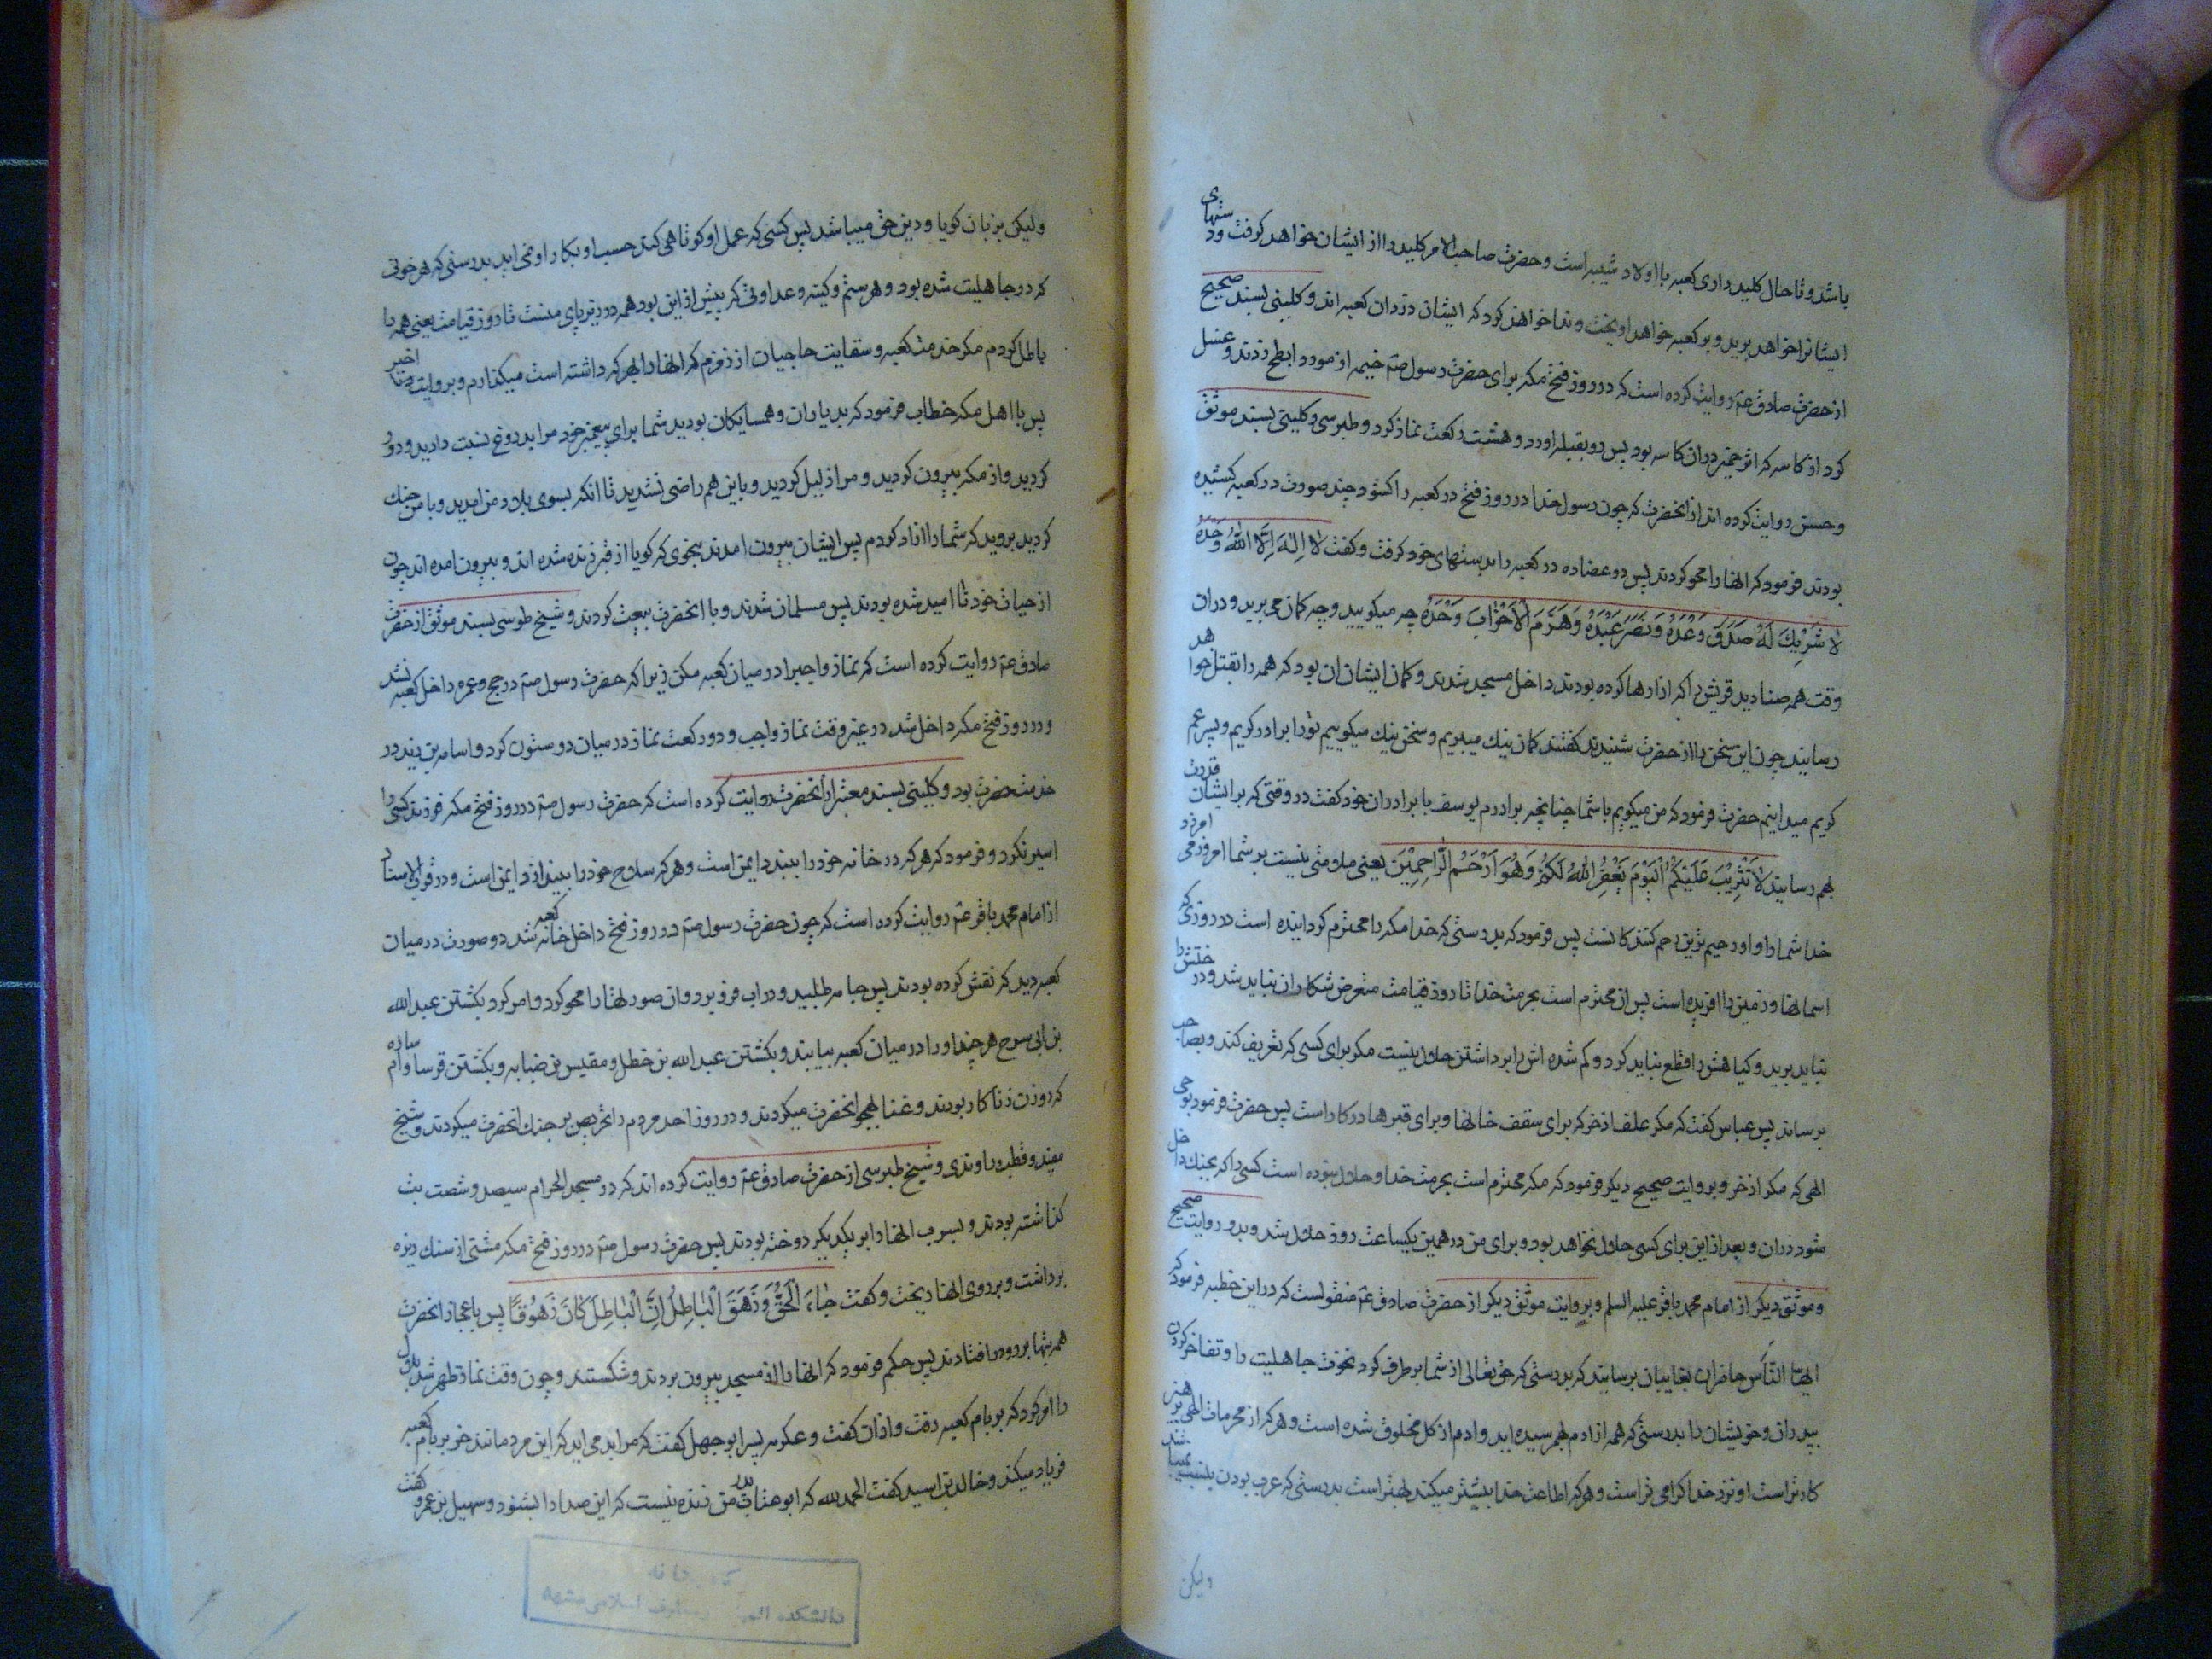 باشد و تا حال کلید داری کعبه با اولاد شیبه است و حضرت صاحب الامر کلید را از ایشان خواهد کرفت و دستهای
ایشانرا خواهد برید و بر کعبه خواهد اویخت و ندا خواهد کرد که ایشان دزدان کعبه اند و کلینی بسند صحیح
از حضرت صادق عم روایت کرده است که در روز فتح مکه برای حضرت رسول صم خیمه از مو در ابطح زدند و غسل
کرد از کاسه که اثر خمیر در ان کاسه بود پس رو بقبله اورد و هشت رکعت نماز کرد و طبرسی و کلینی بسند موثق
و حسن روایت کرده اند از انحضرت که چون رسول خدا در روز فتح در کعبه را کشود چند صورت در کعبه کشیده
بودند فرمود که انها را محو کردند پس دو عضاده در کعبه را بدستهای خود کرفت و کفت لا اِلهَ اِلَّا اللهُ وَحْدَهُ
لا شَرِیْكَ لَهُ صَدَقَ وَعْدَهُ وَنَصَرَ عَبْدَهُ وَهَزَمَ الْاَحْزابَ وَحْدَهُ چه میکویید و چه کمان می برید و دران
وقت همه صنادید قریش را که ازارها کرده بودند داخل مسجد شدند و کمان ایشان ان بود که همه را بقتل خواهد
رسانید چون این سخن را از حضرت شنیدند کفتند کمان نیك میبریم و سخن نیك میکوییم تو را برادر کریم و پسر عم
کریم میدانیم حضرت فرمود که من میکویم با شما چنانچه برادرم یوسف با برادران خود کفت در وقتی که بر ایشان قدرت
بهم رسانید لا تَثْرِیْبَ عَلَیْکُمُ الْیَوْمَ یَغْفِرُ اللهُ لَکُمْ وَهُوَ اَرْحَمُ الرَّاحِمِیْنَ یعنی ملامتی نیست بر شما امروز می امرزد
خدا شما را و او رحیم ترین رحم کنندکانست پس فرمود که بدرستی که خدا مکه را محترم کردانیده است در روزی که
اسمانها و زمین را افریده است پس ان محترم است بحرمت خدا تا روز قیامت متعرض شکار ان نباید شد و درختش را
نباید برید و کیاهش را قطع نباید کرد و کم شده اش را برداشتن حلال نیست مکر برای کسی که تعریف کند و بصاحب
برساند پس عباس کفت که مکر علف اذخر که برای سقف خانها و برای قبرها در کار است پس حضرت فرمود بوحی
الهی که مکر اذخر و بروایت صحیح دیکر فرمود که مکه محترم است بحرمت خدا و حلال نبوده است کسی را که بجنك داخل
شود دران و بعد ازاین برای کسی حلال نخواهد بود و برای من در همین یکساعت روز حلال شد و بدو روایت صحیح
و موثق دیکر از امام محمد باقر علیه السلم و بروایت موثق دیکر از حضرت صادق عم منقولست که دراین خطبه فرمود که
ایها النّاس حاضران بغایبان برسانید که بدرستی که حق تعالی از شما برطرف کرد نخوت جاهلیت را و تفاخر کردن
بپدران و خویشان را بدرستی که همه از ادم بهم رسیده اید و ادم از کل مخلوق شده است و هر که از محرمات الهی پرهیز
کارتراست او نزد خدا کرامی تراست و هر که اطاعت خدا بیشتر میکند بهتراست بدرستی که عرب بودن بنسب نمیباشد
ولیکن
ولیکن بزبان کویا و دین حق میباشد پس کسی که عمل او کوتاهی کند حسب او بکار او نمی اید بدرستی که هر خونی
که در جاهلیت شده بود و هر ستم و کینه و عداوتی که پیش ازاین بود همه در زیر پای منست تا روز قیامت یعنی همه را
باطل کردم مکر خدمت کعبه و سقایت حاجیان از زمزم که انها را باهلش که داشته است میکذارم و بروایت
پس با اهل مکه خطاب فرمود که بد یاران و همسایکان بودید شما برای پیغمبر خود مرا بدروغ نسبت دادید و دور
کردید و از مکه بیرون کردید و مرا ذلیل کردید و باین هم راضی نشدید تا انکه بسوی بلاد من امدید و با من جنك
کردید بروید که شما را ازاد کردم پس ایشان بیرون امدند بنحوی که کویا از قبر زنده شده اند و بیرون امده اند چون
از حیات خود نا امید شده بودند پس مسلمان شدند و با انحضرت بیعت کردند و شیخ طوسی بسند موثق از حضرت
صادق عم روایت کرده است که نماز واجبرا در میان کعبه مکن زیرا که حضرت رسول صم در حج و عمره داخل کعبه نشد
و در روز فتح مکه داخل شد در غیر وقت نماز واجب و دو رکعت نماز در میان دو ستون کرد و اسامه بن زید در
خدمت حضرت بود و کلینی بسند معتبر از انحضرت روایت کرده است که حضرت رسول صم در روز فتح مکه فرزند کسی را
اسیر نکرد و فرمود که هر که در خانه خود را ببندد ایمن است و هر که سلاح خود را بیندازد ایمن است و در قرب الاسناد
از امام محمد باقر عم روایت کرده است که چون حضرت رسول صم در روز فتح داخل خانه کعبه شد دو صورت در میان
کعبه دید که نقش کرده بودند پس جامه طلبید و در اب فرو برد و ان صورتها را محو کرد و امر کرد بکشتن عبد الله
بن ابی سرح هر چند او را در میان کعبه بیابند و بکشتن عبد الله بن خطل و مقیس بن ضبابه و بکشتن قرسا و ام ساره
که دو زن زناکار بودند و غنا بهجو انحضرت میکردند و در روز احد مردم را تحریص بر جنك انحضرت میکردند و شیخ
مفید و قطب راوندی و شیخ طبرسی از حضرت صادق عم روایت کرده اند که در مسجد الحرام سیصد و شصت بت
کذاشته بودند و بسرب انها را بر یکدیکر دوخته بودند پس حضرت رسول صم در روز فتح مکه مشتی از سنك ریزه
برداشت و بر روی انها ریخت و کفت جٰاءَ الْحَقُّ وَزَهَقَ الْبٰاطِلُ اِنَّ الْبٰاطِلَ کٰانَ زَهُوْقًا پس باعجاز انحضرت
همه بتها بر رو در افتادند پس حکم فرمود که انها را از مسجد بیرون بردند و شکستند و چون وقت نماز ظهر شد بلال
را امر کرد که بر بام کعبه رفت و اذان کفت و عکرمه پسر ابو جهل کفت که مرا بد می اید که این مرد مانند خر بر بام کعبه
فریاد میکند و خالد بن اسید کفت الحمد لله که ابو عتاب پدر من زنده نیست که این صدا را بشنود و سهیل بن عمرو کفت
دانشکده الهیات و معارف اسلامی مشهد